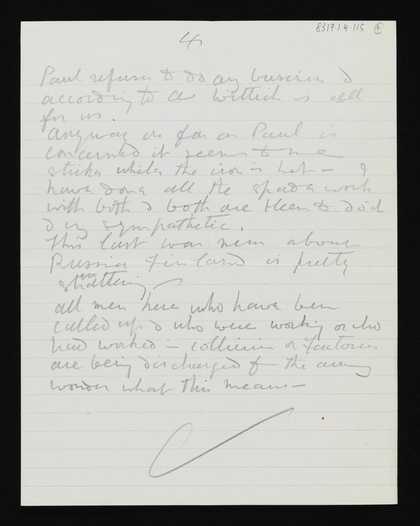 8317.1.4.115
4
Paul refuses to do any business &
according to de Wittich is all
for us.
Anyway as far as Paul is
concerned it seems to me
strike whilst the iron is hot — I
have done all the spade work
with both & both are keen to do it
& sympathetic.
This last war news about
Russia & Finland is pretty
shattering —
All men here who have been
called up & who were working or who
had worked in collieries or factories
are being discharged from the army
wonder what this means —